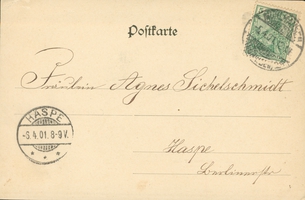 Postkarte
Fräulein Agnes Sichelschmidt
HASPE
-5.4.01.8-9V.
Haspe
Berlinerstr.